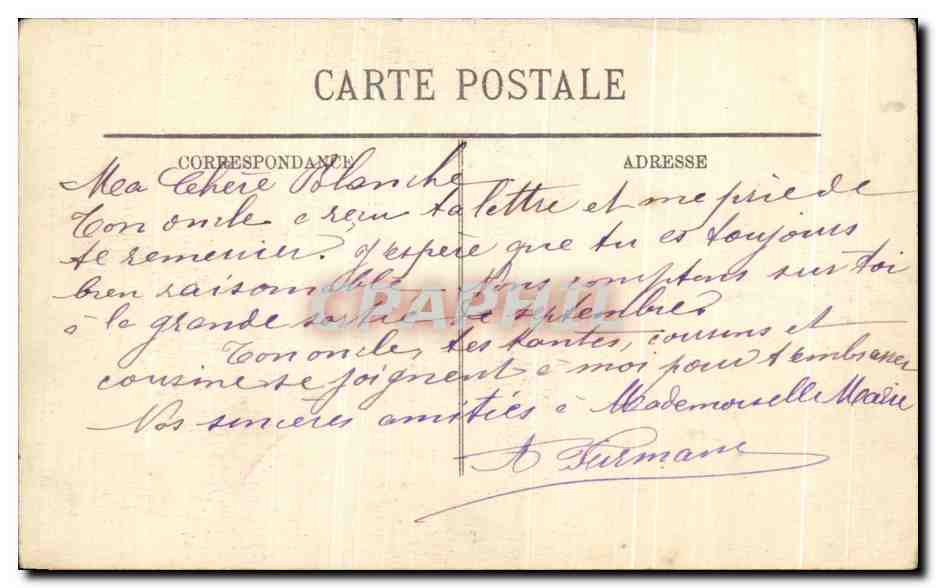 CARTE POSTALE
CORRESPONDANCE
ADRESSE
Ma Chère Blanche
Ton oncle a reçu ta lettre et me prie de
te remercier. J'espère que tu es toujours
bien raisonnable. Nous comptons sur toi
à la grande sortie de septembre.
Ton oncle, tes tantes, cousins et
cousine se joignent à moi pour t'embrasser
Nos sincères amitiés à Mademoiselle Marie
A Furmann
CPAPHIL